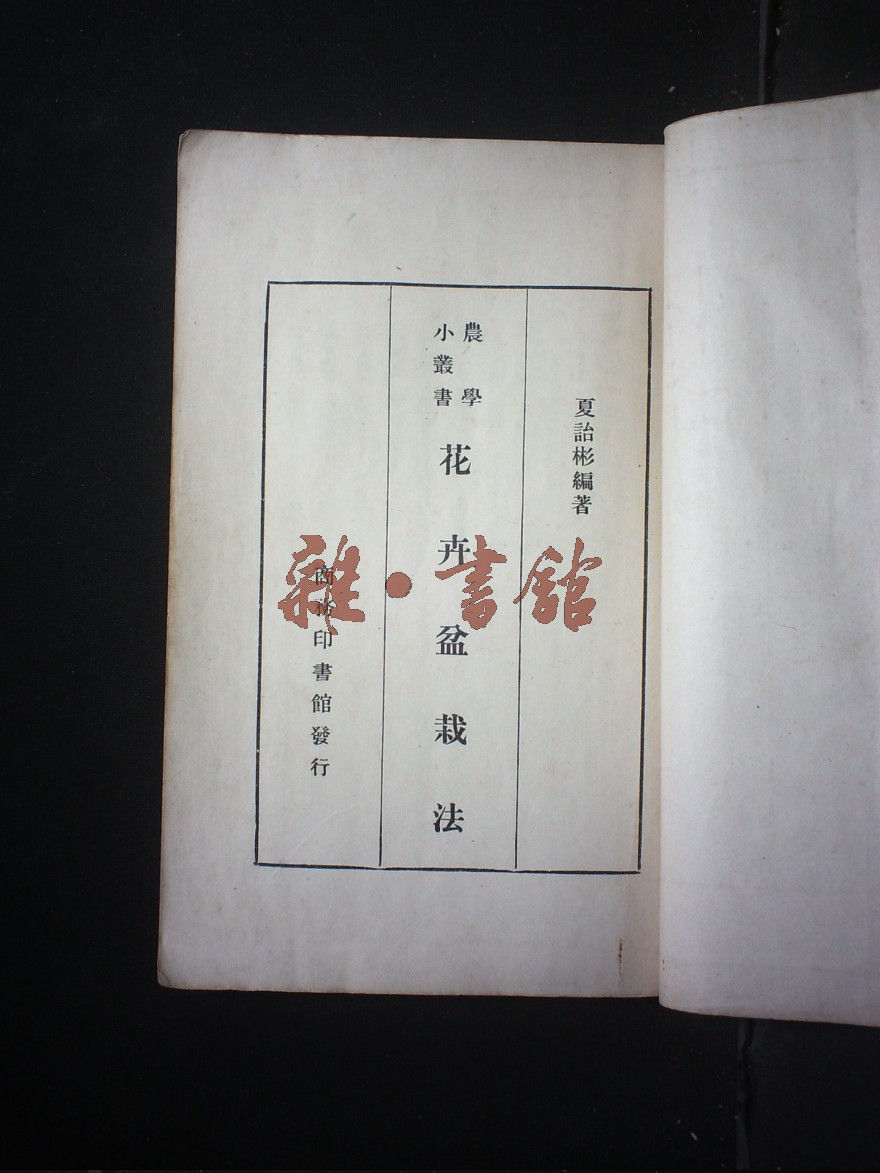 夏詒彬編著
農學
小叢書
花卉盆栽法
商務印書館發行
雜·書館